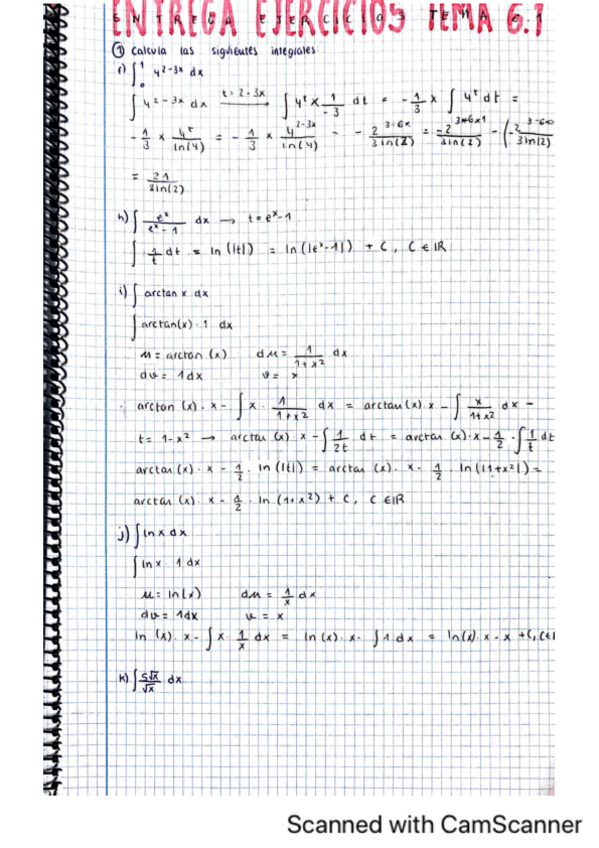 ENTREGA EJERCICIOS TEMA 6.1
① Calcula las siguientes integrales
f) ∫₀¹ 4^(2-3x) dx
∫ 4^(2-3x) dx t = 2-3x → ∫ 4^t × 1/-3 dt = -1/3 × ∫ 4^t dt =
-1/3 × 4^t/ln(4) = -1/3 × 4^(2-3x)/ln(4) = - 2^(3-6x)/3ln(2) = -2^(3-6×1)/3ln(2) - (-2^(3-6×0)/3ln(2)
= 21/8ln(2)
h) ∫ e^x/(e^x-1) dx → t = e^x-1
∫ 1/t dt = ln(|t|) = ln(|e^x-1|) + C, C ∈ IR
i) ∫ arctan x dx
∫ arctan(x) · 1 dx
u = arctan (x) du = 1/(1+x²) dx
dv = 1dx v = x
arctan (x) · x - ∫ x · 1/(1+x²) dx = arctan (x) · x - ∫ x/(1+x²) dx =
t = 1-x² → arctan (x) · x - ∫ 1/2t dt = arctan (x) · x - 1/2 · ∫ 1/t dt
arctan (x) · x - 1/2 · ln(|t|) = arctan (x) · x - 1/2 · ln(|1+x²|) =
arctan (x) · x - 1/2 · ln (1+x²) + C, C ∈ IR
j) ∫ ln x dx
∫ ln x · 1 dx
u = ln(x) du = 1/x dx
dv = 1dx v = x
ln (x) · x - ∫ x · 1/x dx = ln (x) · x - ∫ 1 dx = ln(x) · x - x + C, C ∈
k) ∫ 5√x/√x dx
Scanned with CamScanner